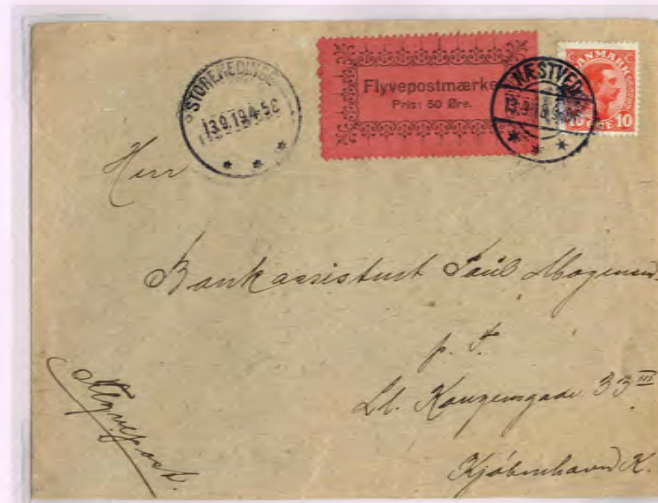 STOREHEDINGE
13.9.19.4-5E
Flyvepostmærke
Pris: 50 Øre.
NÆSTVED
13.9.19.
DANMARK
10 ØRE 10
Herr
Bankassistent Poul Mogensen.
p. t.
Ll. Kongensgade 33 III
Kjøbenhavn K.
Flyvepost.